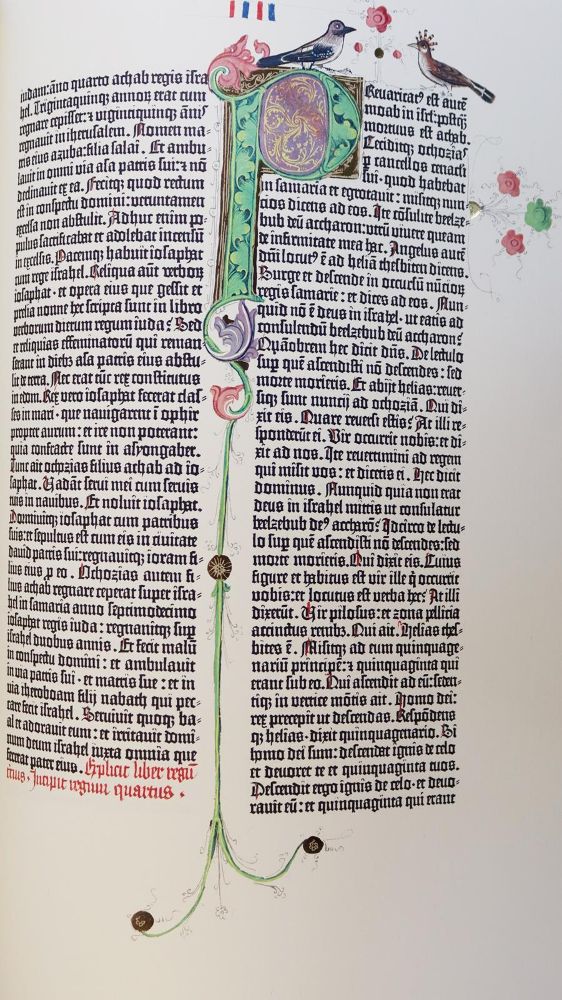 iudam: āno quarto achab regis isra-
hel. Trigintaquinq; annoꝝ erat cum
regnare cepisset: ⁊ vigintiquinq; ānis
regnauit in iherusalem. Nomen ma-
tris eius azuba: filia salai. Et ambu-
lauit in omni via asa patris sui: ⁊ nō
declinauit ex ea. Fecitq; quod rectum
est in conspectu domini: verumtamen
excelsa non abstulit. Adhuc enim po-
pulus sacrificabat et adolebat incensū
in excelsis. Pacemq; habuit iosaphat
cum rege israhel. Reliqua aūt verboꝝ
iosaphat · et opera eius que gessit et
prelia nonne hec scripta sunt in libro
verborum dierum regum iuda? Sed
et reliquias effeminatorū qui reman-
serant in dieb⁊ asa patris eius abstu-
lit de terra. Nec erat tūc rex constitutus
in edom. Rex vero iosaphat fecerat clas-
ses in mari · que nauigarent ī ophir
propter aurum: et ire non poterant:
quia confracte sunt in asyongaber.
Tunc ait ochozias filius achab ad io-
saphat. Vadāt serui mei cum seruis
tuis in nauibus. Et noluit iosaphat.
Dormiuitq; iosaphat cum patribus
suis: et sepultus est cum eis in ciuitate
dauid patris sui: regnauitq; ioram fi-
lius eius ꝓ eo. Ochozias autem fi-
lius achab regnare ceperat super isra-
hel in samaria anno septimodecimo
iosaphat regis iuda: regnauitq; suꝑ
israhel duobus annis. Et fecit malū
in conspectu domini: et ambulauit
in via patris sui · et matris sue: et in
via iheroboam filij nabath qui pec-
care fecit israhel. Seruiuit quoq; ba-
al et adorauit eum: et irritauit domi-
num deum israhel iuxta omnia que
fecerat pater eius. Explicit liber regū
tercius. Incipit regum quartus.
PReuaricatꝰ est autē
moab in isrl: postq̄
mortuus est achab.
Ceciditq; ochozias
ꝑ cancellos cenaculi
sui · quod habebat
in samaria et egrotauit: misitq; nun-
cios dicens ad eos. Ite cōsulite beelze-
bub deū accharon: vtrū viuere queam
de infirmitate mea hac. Angelus autē
dn̄i locutꝰ ē ad heliā thesbiten dicens.
Surge et descende in occursū nūcioꝝ
regis samarie: et dices ad eos. Nun-
quid nō ē deus in israhel · ut eatis ad
consulendū beelzebub deū accharon?
Quāobrem hec dicit dn̄s. De lectulo
suꝑ quē ascendisti nō descendes: sed
morte morieris. Et abijt helias: reuer-
siq; sunt nuncij ad ochoziā. Qui di-
xit eis. Quare reuersi estis? At illi re-
sponderūt ei. Vir occurrit nobis: et di-
xit ad nos. Ite reuertimini ad regem
qui misit vos: et dicetis ei. Hec dicit
dominus. Nunquid quia non erat
deus in israhel mittis ut consulatur
beelzebub deꝰ accharō? Idcirco de lectu-
lo suꝑ quē ascendisti nō descendes: sed
morte morieris. Qui dixit eis. Cuius
figure et habitus est vir ille q̄ occurrit
vobis: et locutus est verba hec? At illi
dixerūt. Vir pilosus: et zona pellicia
accinctus renib⁊. Qui ait. Helias thes-
bites ē. Misitq; ad eum quinquage-
nariū principē: ⁊ quinquaginta qui
erant sub eo. Qui ascendit ad eū: seden-
tiq; in vertice mōtis ait. Homo dei:
rex precepit ut descendas. Respōdens
q; helias · dixit quinquagenario. Si
homo dei sum: descendat ignis de celo
et deuoret te et quinquaginta tuos.
Descendit ergo ignis de celo · et deuo-
rauit eū: et quinquaginta qui erant